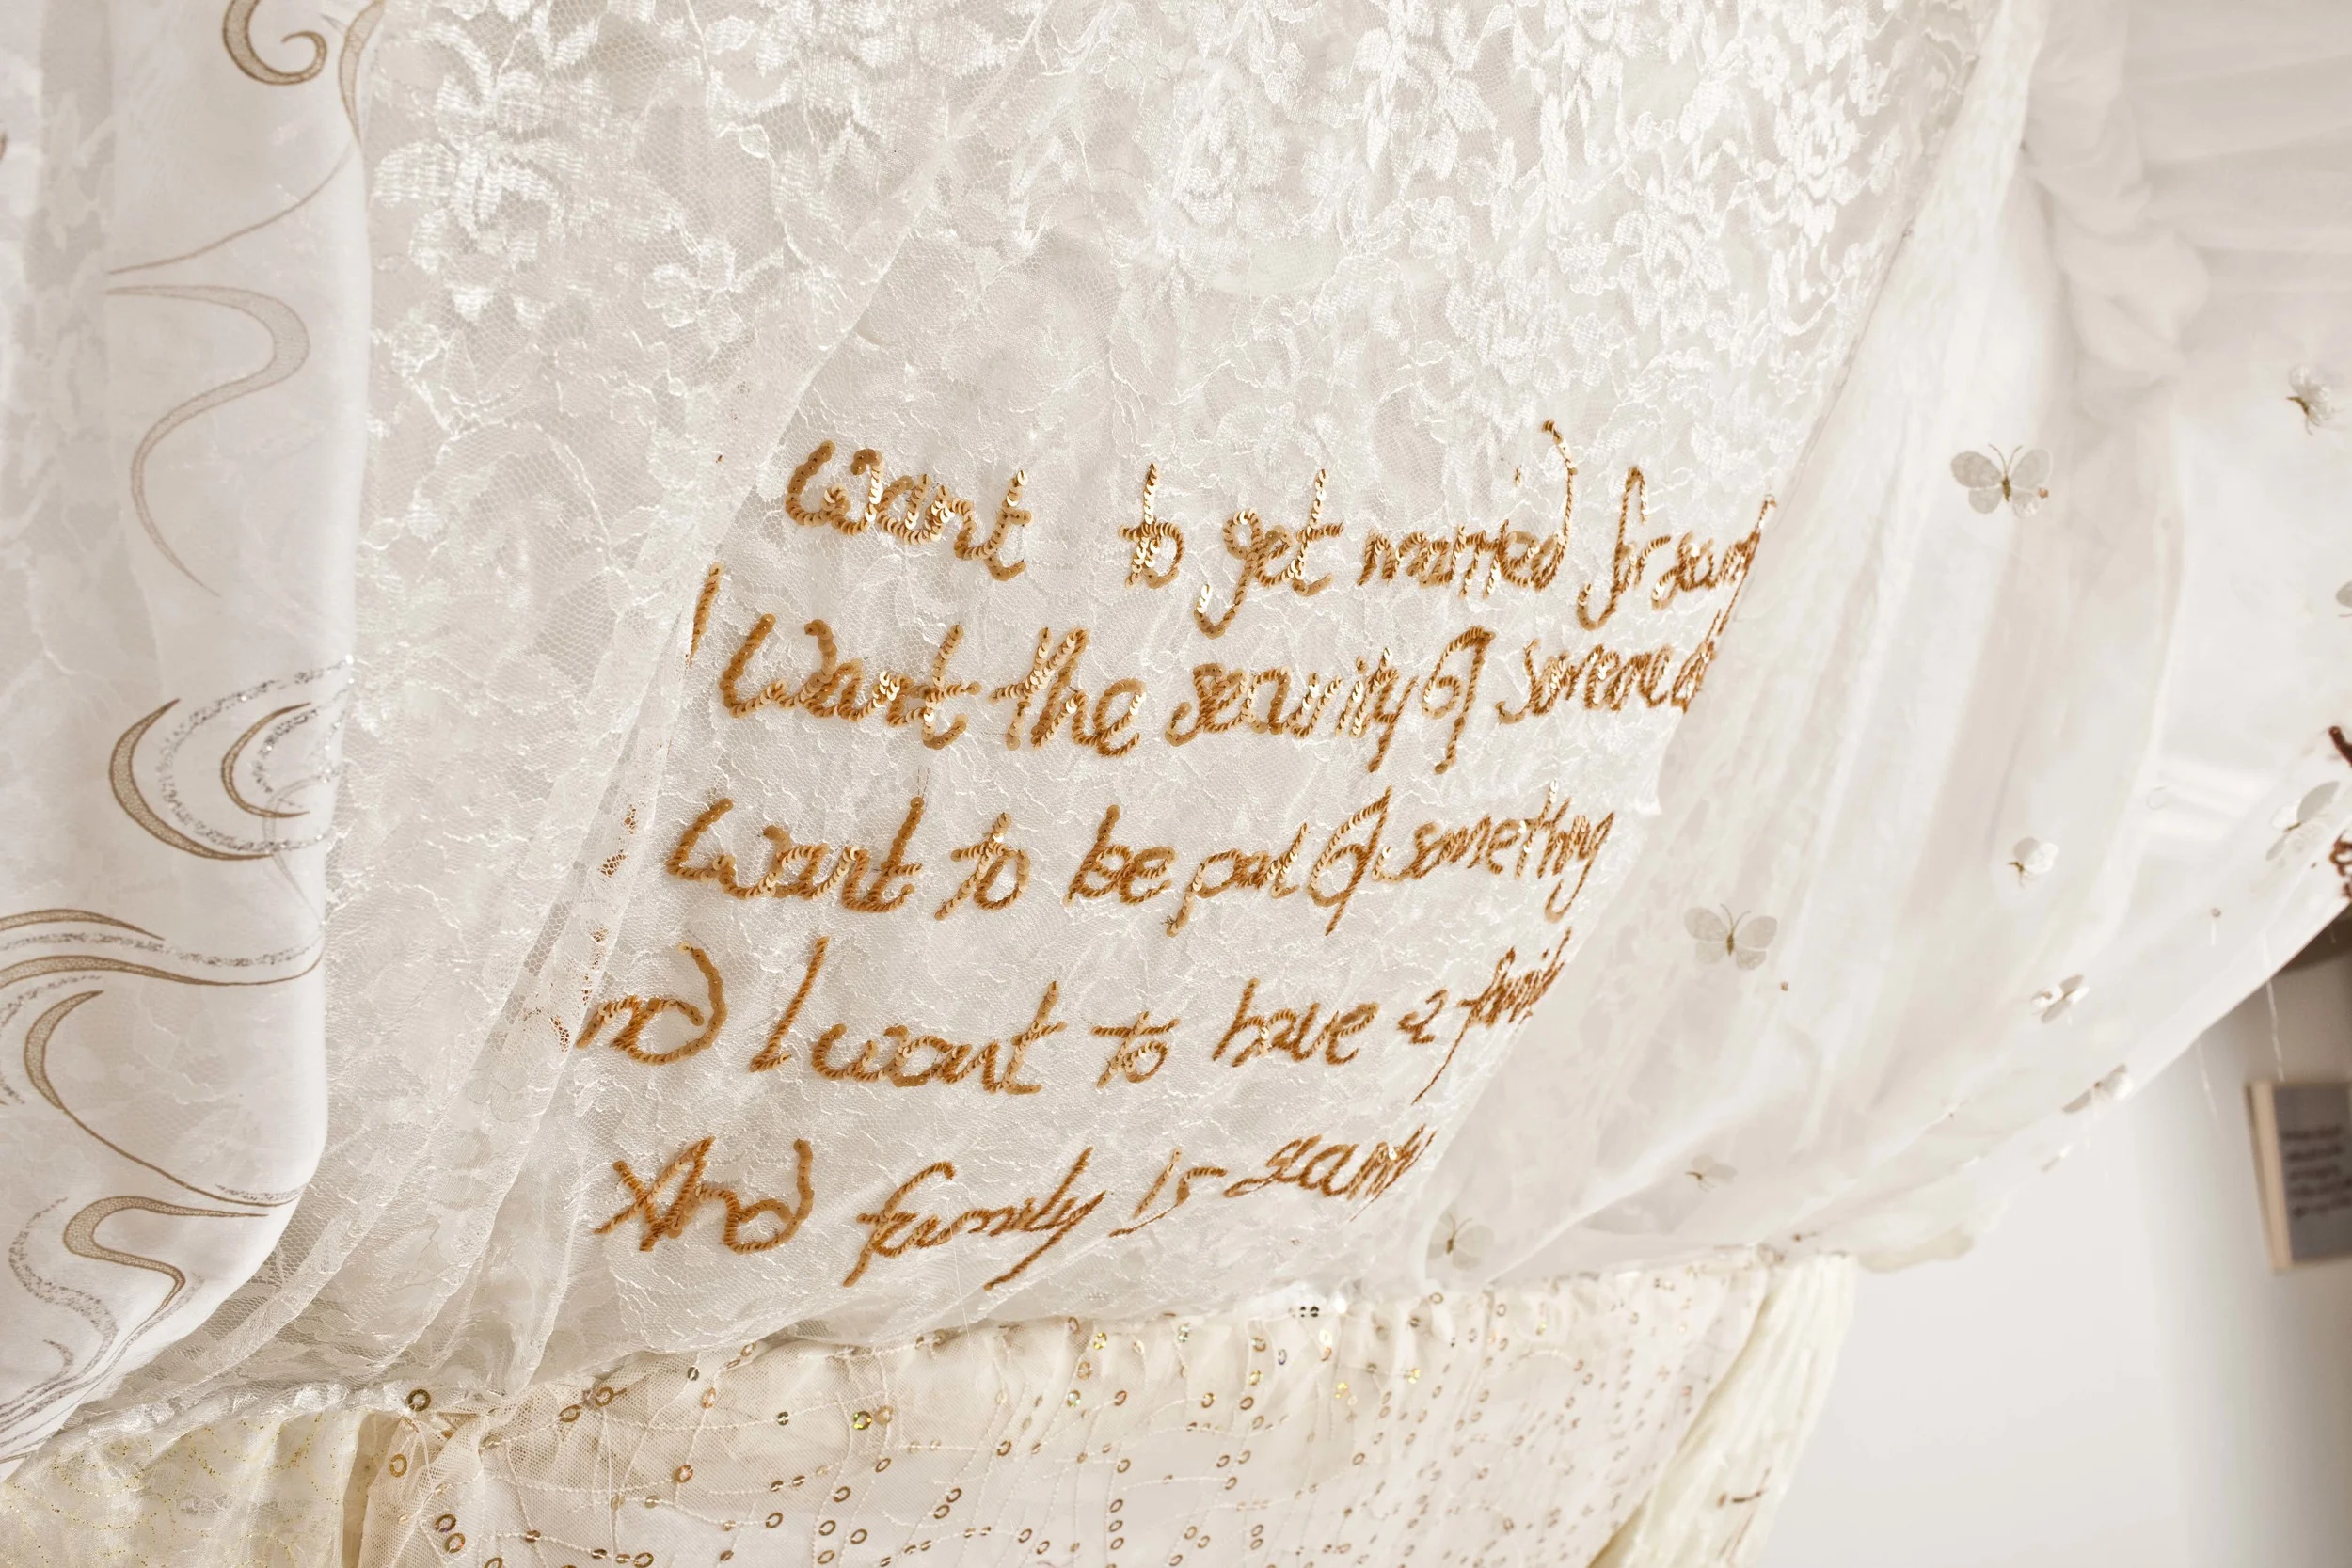 want to get married for security
I want the security of someone
want to be part of something
nd I want to have a famil
And family is security